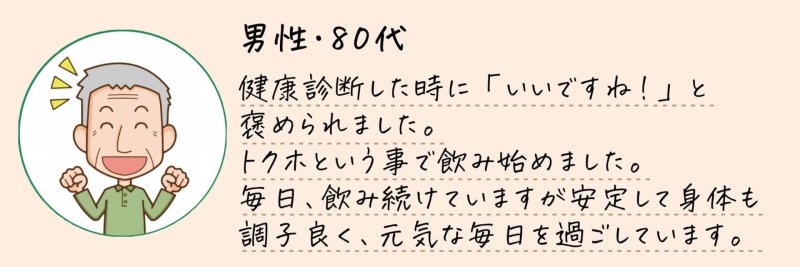 男性・80代
健康診断した時に「いいですね！」と
褒められました。
トクホという事で飲み始めました。
毎日、飲み続けていますが安定して身体も
調子良く、元気な毎日を過ごしています。